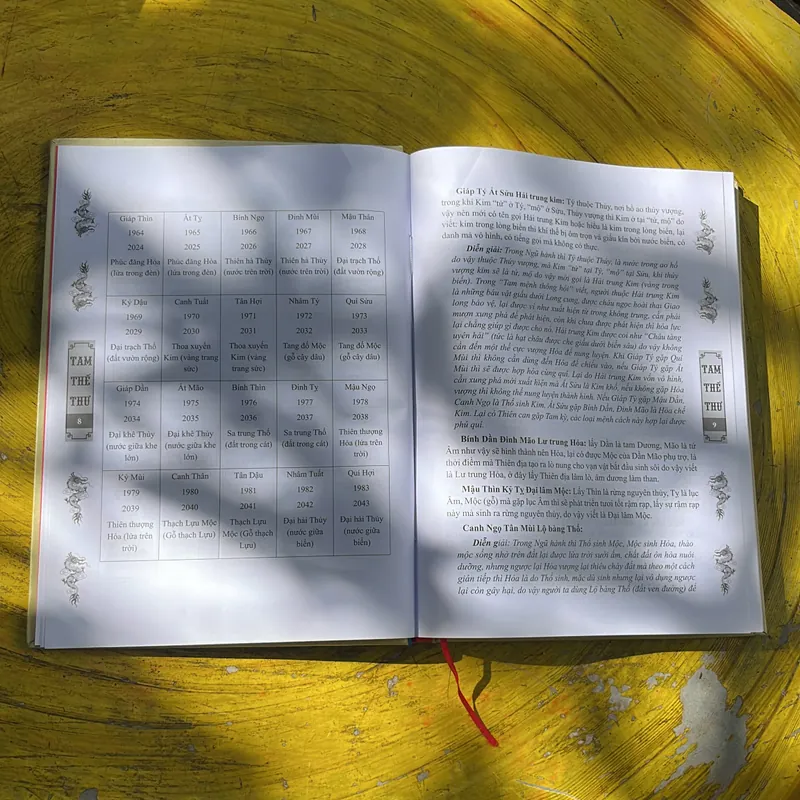 Giáp Thìn Ất Tỵ Bính Ngọ Đinh Mùi Mậu Thân
1964 1965 1966 1967 1968
2024 2025 2026 2027 2028
Phúc đăng Hỏa Phúc đăng Hỏa Thiên hà Thủy Thiên hà Thủy Đại trạch Thổ
(lửa trong đèn) (lửa trong đèn) (nước trên trời) (nước trên trời) (đất vườn rộng)
Kỷ Dậu Canh Tuất Tân Hợi Nhâm Tý Quí Sửu
1969 1970 1971 1972 1973
2029 2030 2031 2032 2033
Đại trạch Thổ Thoa xuyến Thoa xuyến Tang đố Mộc Tang đố Mộc
(đất vườn rộng) Kim (vàng trang Kim (vàng trang (gỗ cây dâu) (gỗ cây dâu)
sức) sức)
Giáp Dần Ất Mão Bính Thìn Đinh Tỵ Mậu Ngọ
1974 1975 1976 1977 1978
2034 2035 2036 2037 2038
Đại khê Thủy Đại khê Thủy Sa trung Thổ Sa trung Thổ Thiên thượng
(nước giữa khe (nước giữa khe (đất trong cát) (đất trong cát) Hỏa (lửa trên
lớn) lớn) trời)
Kỷ Mùi Canh Thân Tân Dậu Nhâm Tuất Quí Hợi
1979 1980 1981 1982 1983
2039 2040 2041 2042 2043
Thiên thượng Thạch Lựu Mộc Thạch Lựu Đại hải Thủy Đại hải Thủy
Hỏa (lửa trên (Gỗ thạch Lựu) Mộc (Gỗ thạch (nước giữa (nước giữa
trời) Lựu) biển) biển)
TAM
THẾ
THƯ
8
Giáp Tý Ất Sửu Hải trung kim: Tý thuộc Thủy, nơi hồ ao thủy vượng,
trong khi Kim "tử" ở Tý, "mộ" ở Sửu, Thủy vượng thì Kim ở tại "tử, mộ" do
vậy nên mới có tên gọi Hải trung Kim hoặc hiểu là kim trong lòng biển, lại
viết: kim trong lòng biển thì khí thế bị ôm trọn và giấu kín bởi nước biển, có
danh mà vô hình, có tiếng gọi mà không có thực.
Diễn giải: Trong Ngũ hành thì Tý thuộc Thủy, là nước trong ao hồ
do vậy thuộc Thủy vượng, mà Kim "tử" tại Tý, "mộ" tại Sửu, khi thủy
vượng kim sẽ là tử, mộ do vậy mới gọi là Hải trung Kim (vàng trong
biển). Trong "Tam mệnh thông hội" viết, người thuộc Hải trung Kim
là những báu vật giấu dưới Long cung, được châu ngọc hoài thai Giao
long bảo vệ, lại được ví như xuất hiện từ trong không trung, cần phải
mượn xung phá để phát hiện, còn khi chưa được phát hiện thì hỏa lực
lại chẳng giúp gì được cho nó. Hải trung Kim được coi như "Châu tàng
uyên hải" (tức là hạt châu được che giấu dưới biển sâu) do vậy không
cần đến một thế cực vượng Hỏa để nung luyện. Khi Giáp Tý gặp Quí
Mùi thì không cần dùng đến Hỏa để chiếu vào, nếu Giáp Tý gặp Ất
Mùi thì sẽ được hợp hóa cùng quí. Lại do Hải trung Kim vốn vô hình,
cần xung phá mới xuất hiện mà Ất Sửu là Kim khố, nếu không gặp Hỏa
vượng thì không thể nung luyện thành hình. Nếu Giáp Tý gặp Mậu Dần,
Canh Ngọ là Thổ sinh Kim, Ất Sửu gặp Bính Dần, Đinh Mão là Hỏa chế
Kim. Lại có Thiên can gặp Tam kỳ, các loại mệnh cách này hợp lại được
phú quí.
Bính Dần Đinh Mão Lư trung Hỏa: lấy Dần là tam Dương, Mão là tứ
Âm như vậy sẽ hình thành nên Hỏa, lại có được Mộc của Dần Mão phụ trợ, là
thời điểm mà Thiên địa tạo ra lò nung cho vạn vật bắt đầu sinh sôi do vậy viết
là Lư trung Hỏa, ở đây lấy Thiên địa làm lò, âm dương làm than.
Mậu Thìn Kỷ Tỵ Đại lâm Mộc: Lấy Thìn là rừng nguyên thủy, Tỵ là lục
Âm, Mộc (gỗ) mà gặp lục Âm thì sẽ phát triển tươi tốt rậm rạp, lấy sự rậm rạp
này mà sinh ra rừng nguyên thủy, do vậy viết là Đại lâm Mộc.
Canh Ngọ Tân Mùi Lộ bàng Thổ:
Diễn giải: Trong Ngũ hành thì Thổ sinh Mộc, Mộc sinh Hỏa, thảo
mộc sống nhờ trên đất lại được lửa trời sưởi ấm, chất đất ôn hòa nuôi
dưỡng, nhưng ngược lại Hỏa vượng lại thiêu cháy đất mà theo một cách
gián tiếp thì Hỏa là do Thổ sinh, mặc dù sinh nhưng lại vô dụng ngược
lại còn gây hại, do vậy người ta dùng Lộ bàng Thổ (đất ven đường) để
TAM
THẾ
THƯ
9